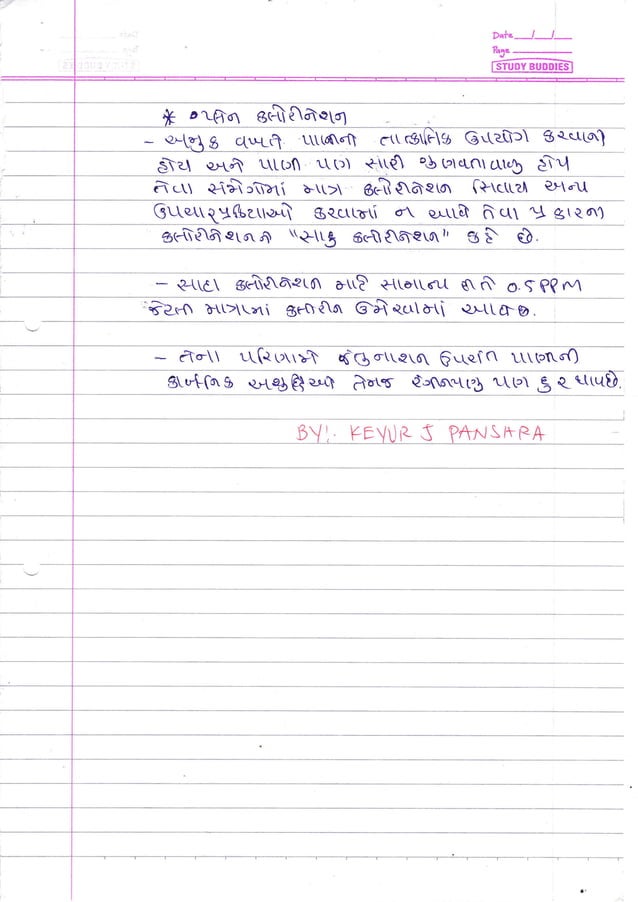 Date __/__/__
Page ________
STUDY BUDDIES
* પ્લેન કલોરીનેશન
- અમુક વખતે પાણીનો તાત્કાલિક ઉપયોગ કરવાનો
હોય અને પાણી પણ સારી ગુણવતાવાળુ હોય
તેવા સંજોગોમાં માત્ર કલોરીનેશન સિવાય અન્ય
ઉપચારપ્રક્રિયાઓ કરવામાં ન આવે તેવા પ્રકારના
કલોરીનેશનને "સાદુ કલોરીનેશન" કહે છે.
- સાદા કલોરીનેશન માટે સામાન્ય રીતે 0.5 PPM
જેટલી માત્રામાં કલોરીન ઉમેરવામાં આવે છે.
- તેના પરિણામે જંતુનાશન ઉપરાંત પાણીની
કાર્બનિક અશુદ્ધિઓ તેમજ રંગીનપણુ પણ દુર થાય છે.
BY:- KEYUR J PANSHARA